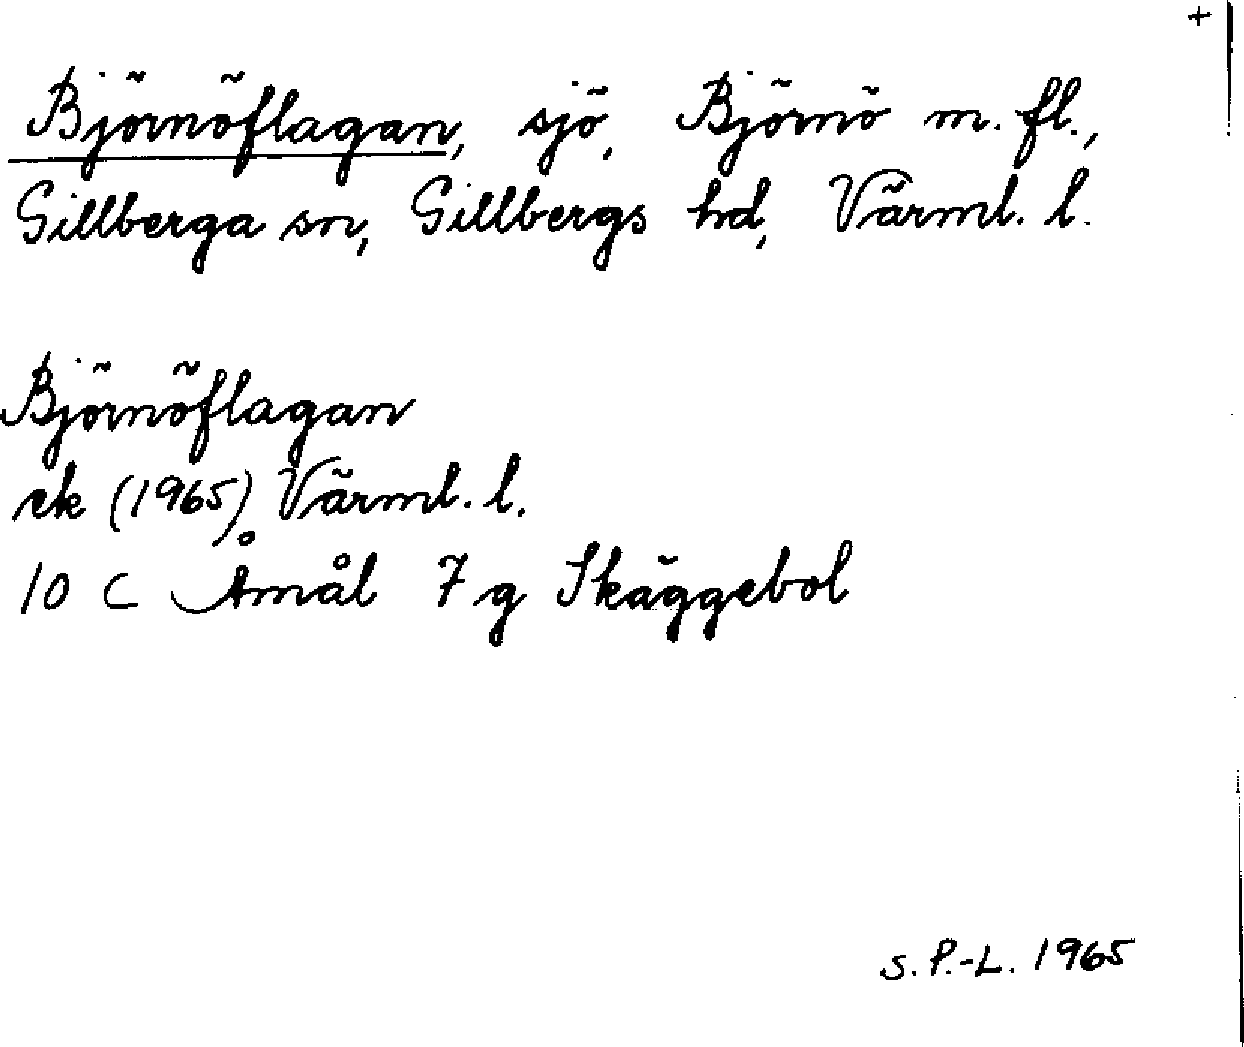 +
Björnöflagan, sjö, Björnö m. fl.,
Gillberga sn, Gillbergs hd, Värml. l.
Björnöflagan
ek (1965) Värml. l.
10 C Åmål 7 g Skäggebol
S. P.-L. 1965